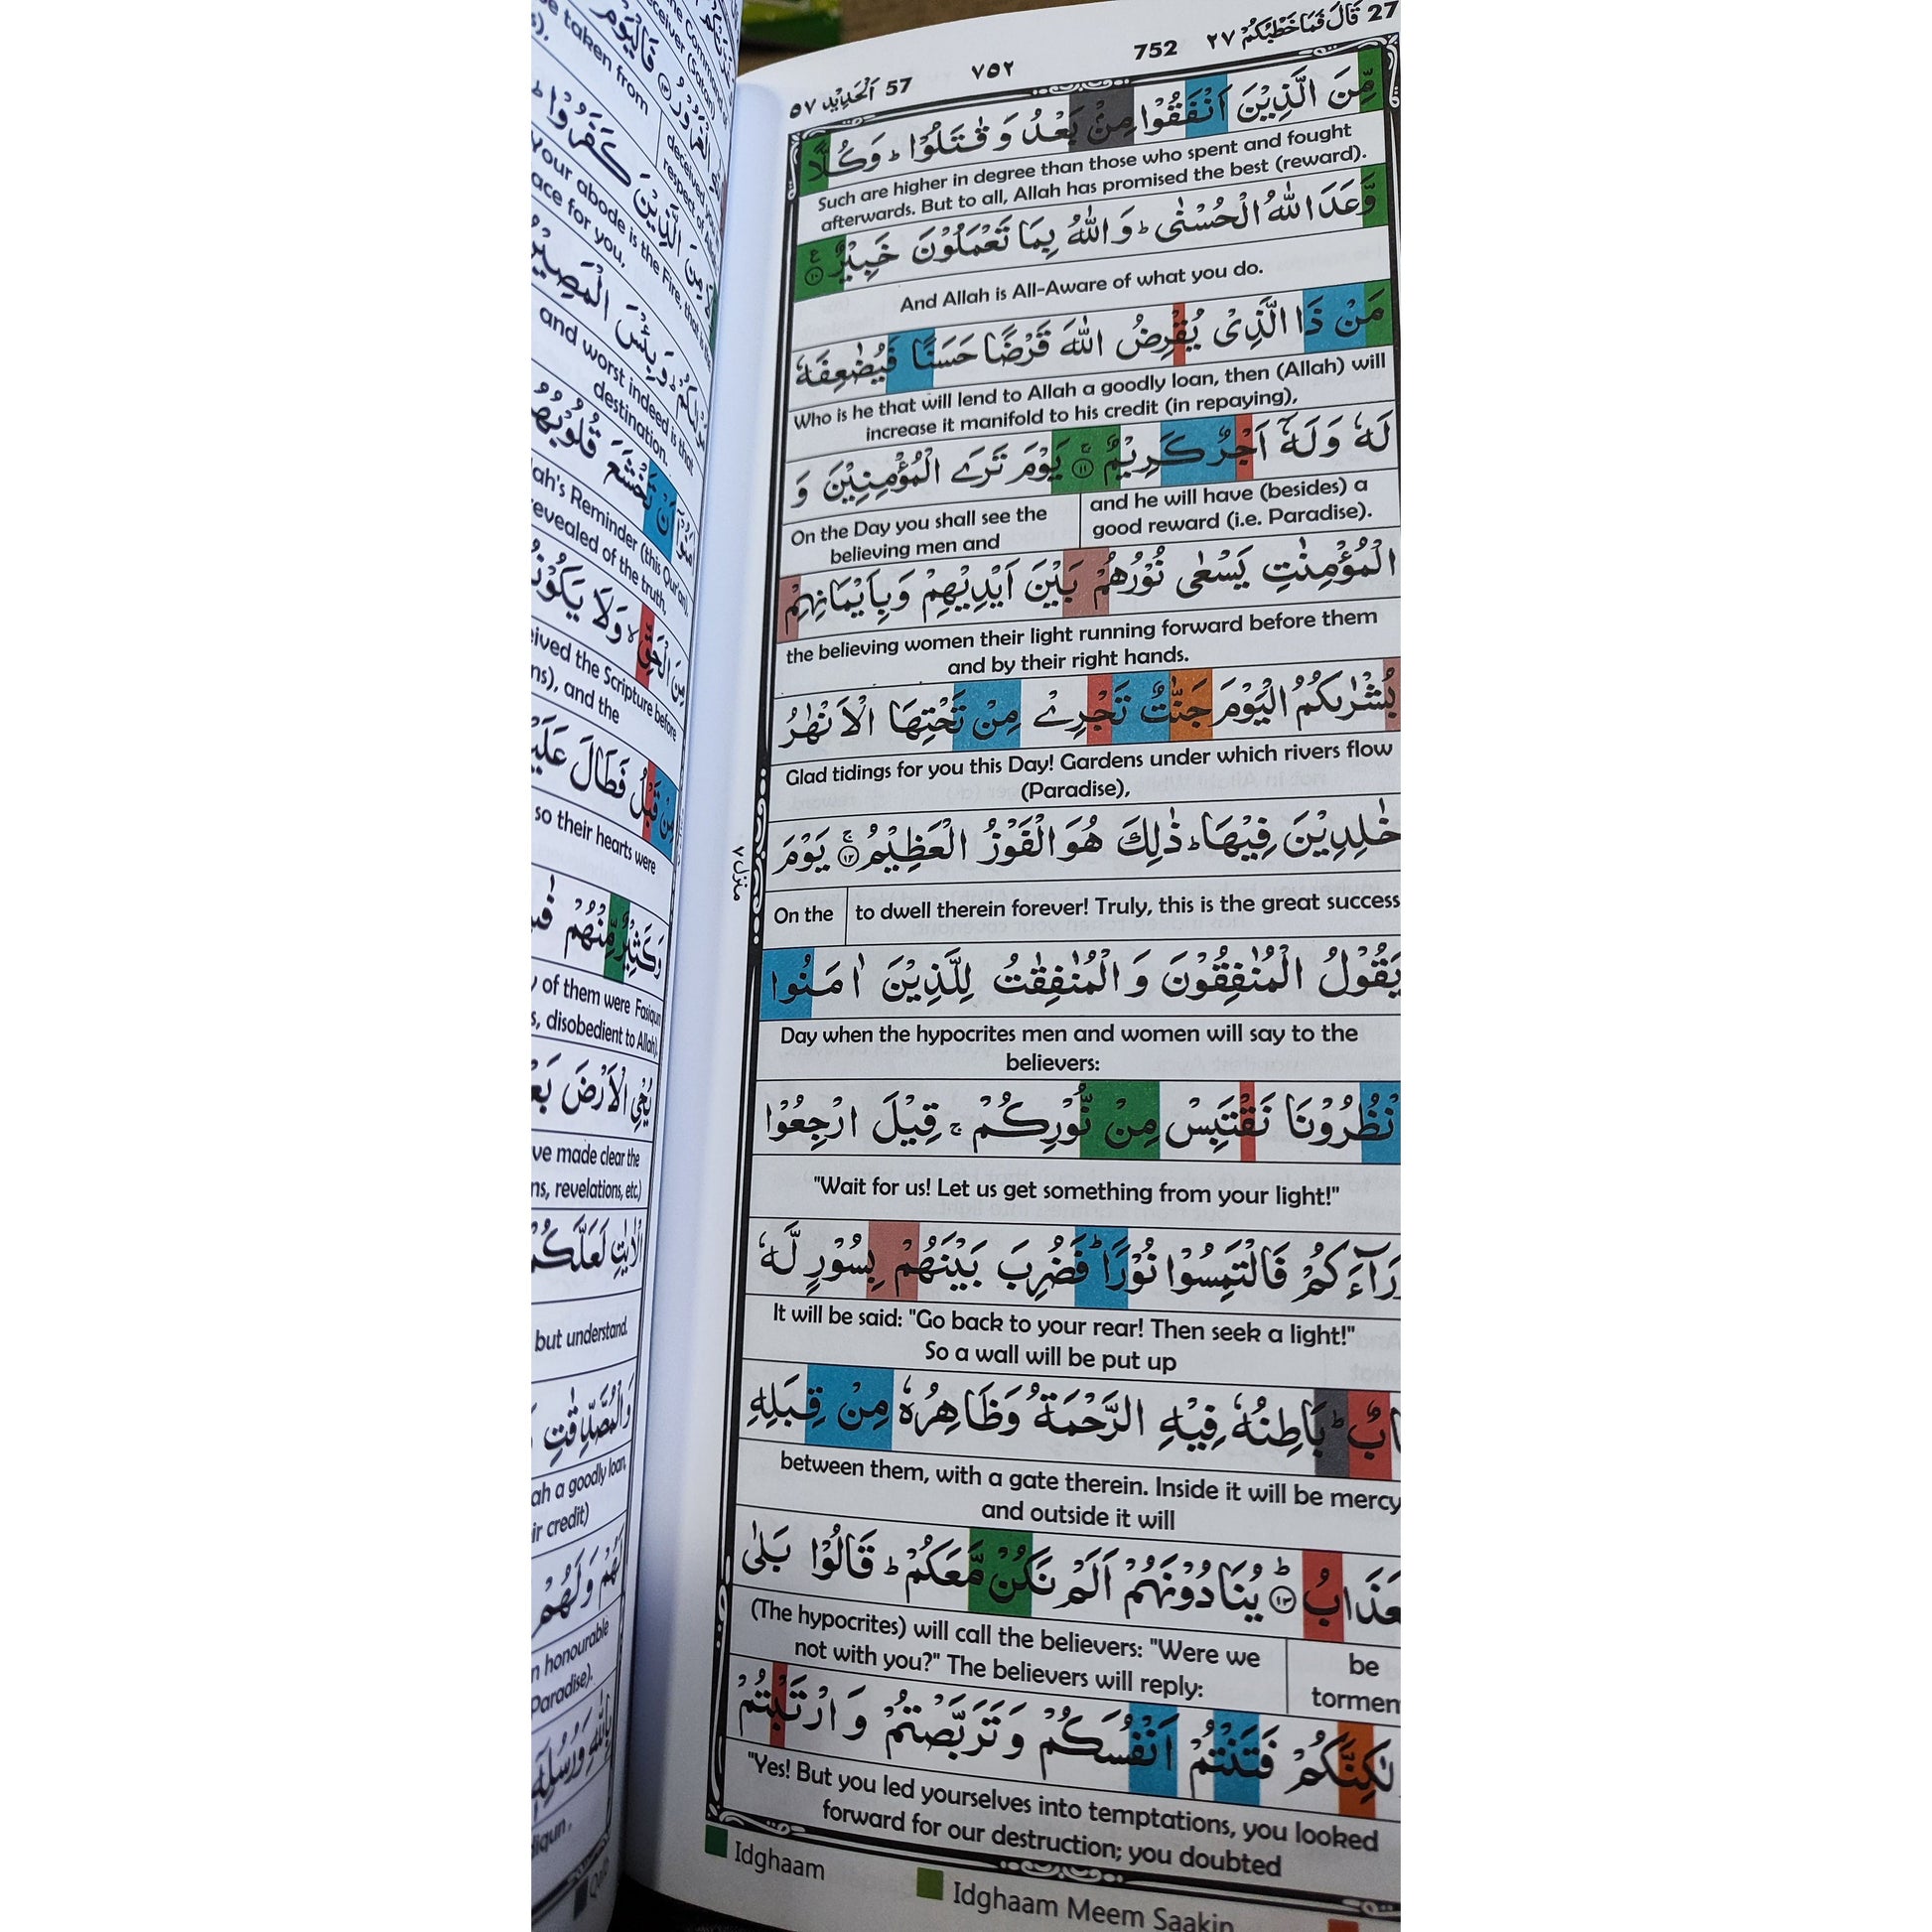 27 قَالَ فَمَا خَطْبُكُمْ ٢٧
752
٧٥٢
57 اَلْحَدِيْد ٥٧
مِّنَ الَّذِيْنَ اَنْفَقُوْا مِنْۢ بَعْدُ وَ قٰتَلُوْا ؕ وَكُلًّا
Such are higher in degree than those who spent and fought
afterwards. But to all, Allah has promised the best (reward).
وَّعَدَ اللّٰهُ الْحُسْنٰى ؕ وَ اللّٰهُ بِمَا تَعْمَلُوْنَ خَبِيْرٌ ۧ ﴿١٠﴾
And Allah is All-Aware of what you do.
مَنْ ذَا الَّذِىْ يُقْرِضُ اللّٰهَ قَرْضًا حَسَنًا فَيُضٰعِفَهٗ
Who is he that will lend to Allah a goodly loan, then (Allah) will
increase it manifold to his credit (in repaying),
لَهٗ وَلَهٗۤ اَجْرٌ كَرِيْمٌ ۚ ﴿١١﴾ يَوْمَ تَرَى الْمُؤْمِنِيْنَ وَ
and he will have (besides) a
good reward (i.e. Paradise).
On the Day you shall see the
believing men and
الْمُؤْمِنٰتِ يَسْعٰى نُوْرُهُمْ بَيْنَ اَيْدِيْهِمْ وَبِاَيْمَانِهِمْ
the believing women their light running forward before them
and by their right hands.
بُشْرٰىكُمُ الْيَوْمَ جَنّٰتٌ تَجْرِىْ مِنْ تَحْتِهَا الْاَنْهٰرُ
Glad tidings for you this Day! Gardens under which rivers flow
(Paradise),
خٰلِدِيْنَ فِيْهَا ؕ ذٰلِكَ هُوَ الْفَوْزُ الْعَظِيْمُ ۚ ﴿١٢﴾ يَوْمَ
to dwell therein forever! Truly, this is the great success
On the
يَقُوْلُ الْمُنٰفِقُوْنَ وَ الْمُنٰفِقٰتُ لِلَّذِيْنَ اٰمَنُوا
Day when the hypocrites men and women will say to the
believers:
نْظُرُوْنَا نَقْتَبِسْ مِنْ نُّوْرِكُمْ ۚ قِيْلَ ارْجِعُوْا
"Wait for us! Let us get something from your light!"
رَآءَكُمْ فَالْتَمِسُوْا نُوْرًا ؕ فَضُرِبَ بَيْنَهُمْ بِسُوْرٍ لَّهٗ
It will be said: "Go back to your rear! Then seek a light!"
So a wall will be put up
ابٌ ؕ بَاطِنُهٗ فِيْهِ الرَّحْمَةُ وَظَاهِرُهٗ مِنْ قِبَلِهِ
between them, with a gate therein. Inside it will be mercy
and outside it will
عَذَابُ ؕ ﴿١٣﴾ يُنَادُوْنَهُمْ اَلَمْ نَكُنْ مَّعَكُمْ ؕ قَالُوْا بَلٰى
be
tormen
(The hypocrites) will call the believers: "Were we
not with you?" The believers will reply:
لٰكِنَّكُمْ فَتَنْتُمْ اَنْفُسَكُمْ وَ تَرَبَّصْتُمْ وَ ارْتَبْتُمْ
"Yes! But you led yourselves into temptations, you looked
forward for our destruction; you doubted
منزل ٧
Idghaam
Idghaam Meem Saakin
be taken from
deceived you
respect of
كَفَرُوْا ؕ
مِنَ الَّذِيْنَ
your abode is the Fire, that is
ace for you,
وَبِئْسَ الْمَصِيْرُ
and worst indeed is that
destination.
تَخْشَعَ قُلُوْبُهُ
lah's Reminder (this Qur'an),
revealed of the truth,
مِنَ الْحَقِّ ۙ وَلَا يَكُوْنُ
eived the Scripture before
ns), and the
مِنْ قَبْلُ فَطَالَ عَلَيْ
so their hearts were
وَكَثِيْرٌ مِّنْهُمْ
of them were Fasiqun
s, disobedient to Allah).
يُحْىِ الْاَرْضَ بَعْ
ve made clear the
ns, revelations, etc.)
الْاٰيٰتِ لَعَلَّكُمْ
but understand.
وَالْمُصَّدِّقٰتِ
ah a goodly loan,
ir credit)
لَهُمْ وَلَهُمْ
n honourable
Paradise).
بِاللّٰهِ وَرُسُلِهٖۤ
diqun,